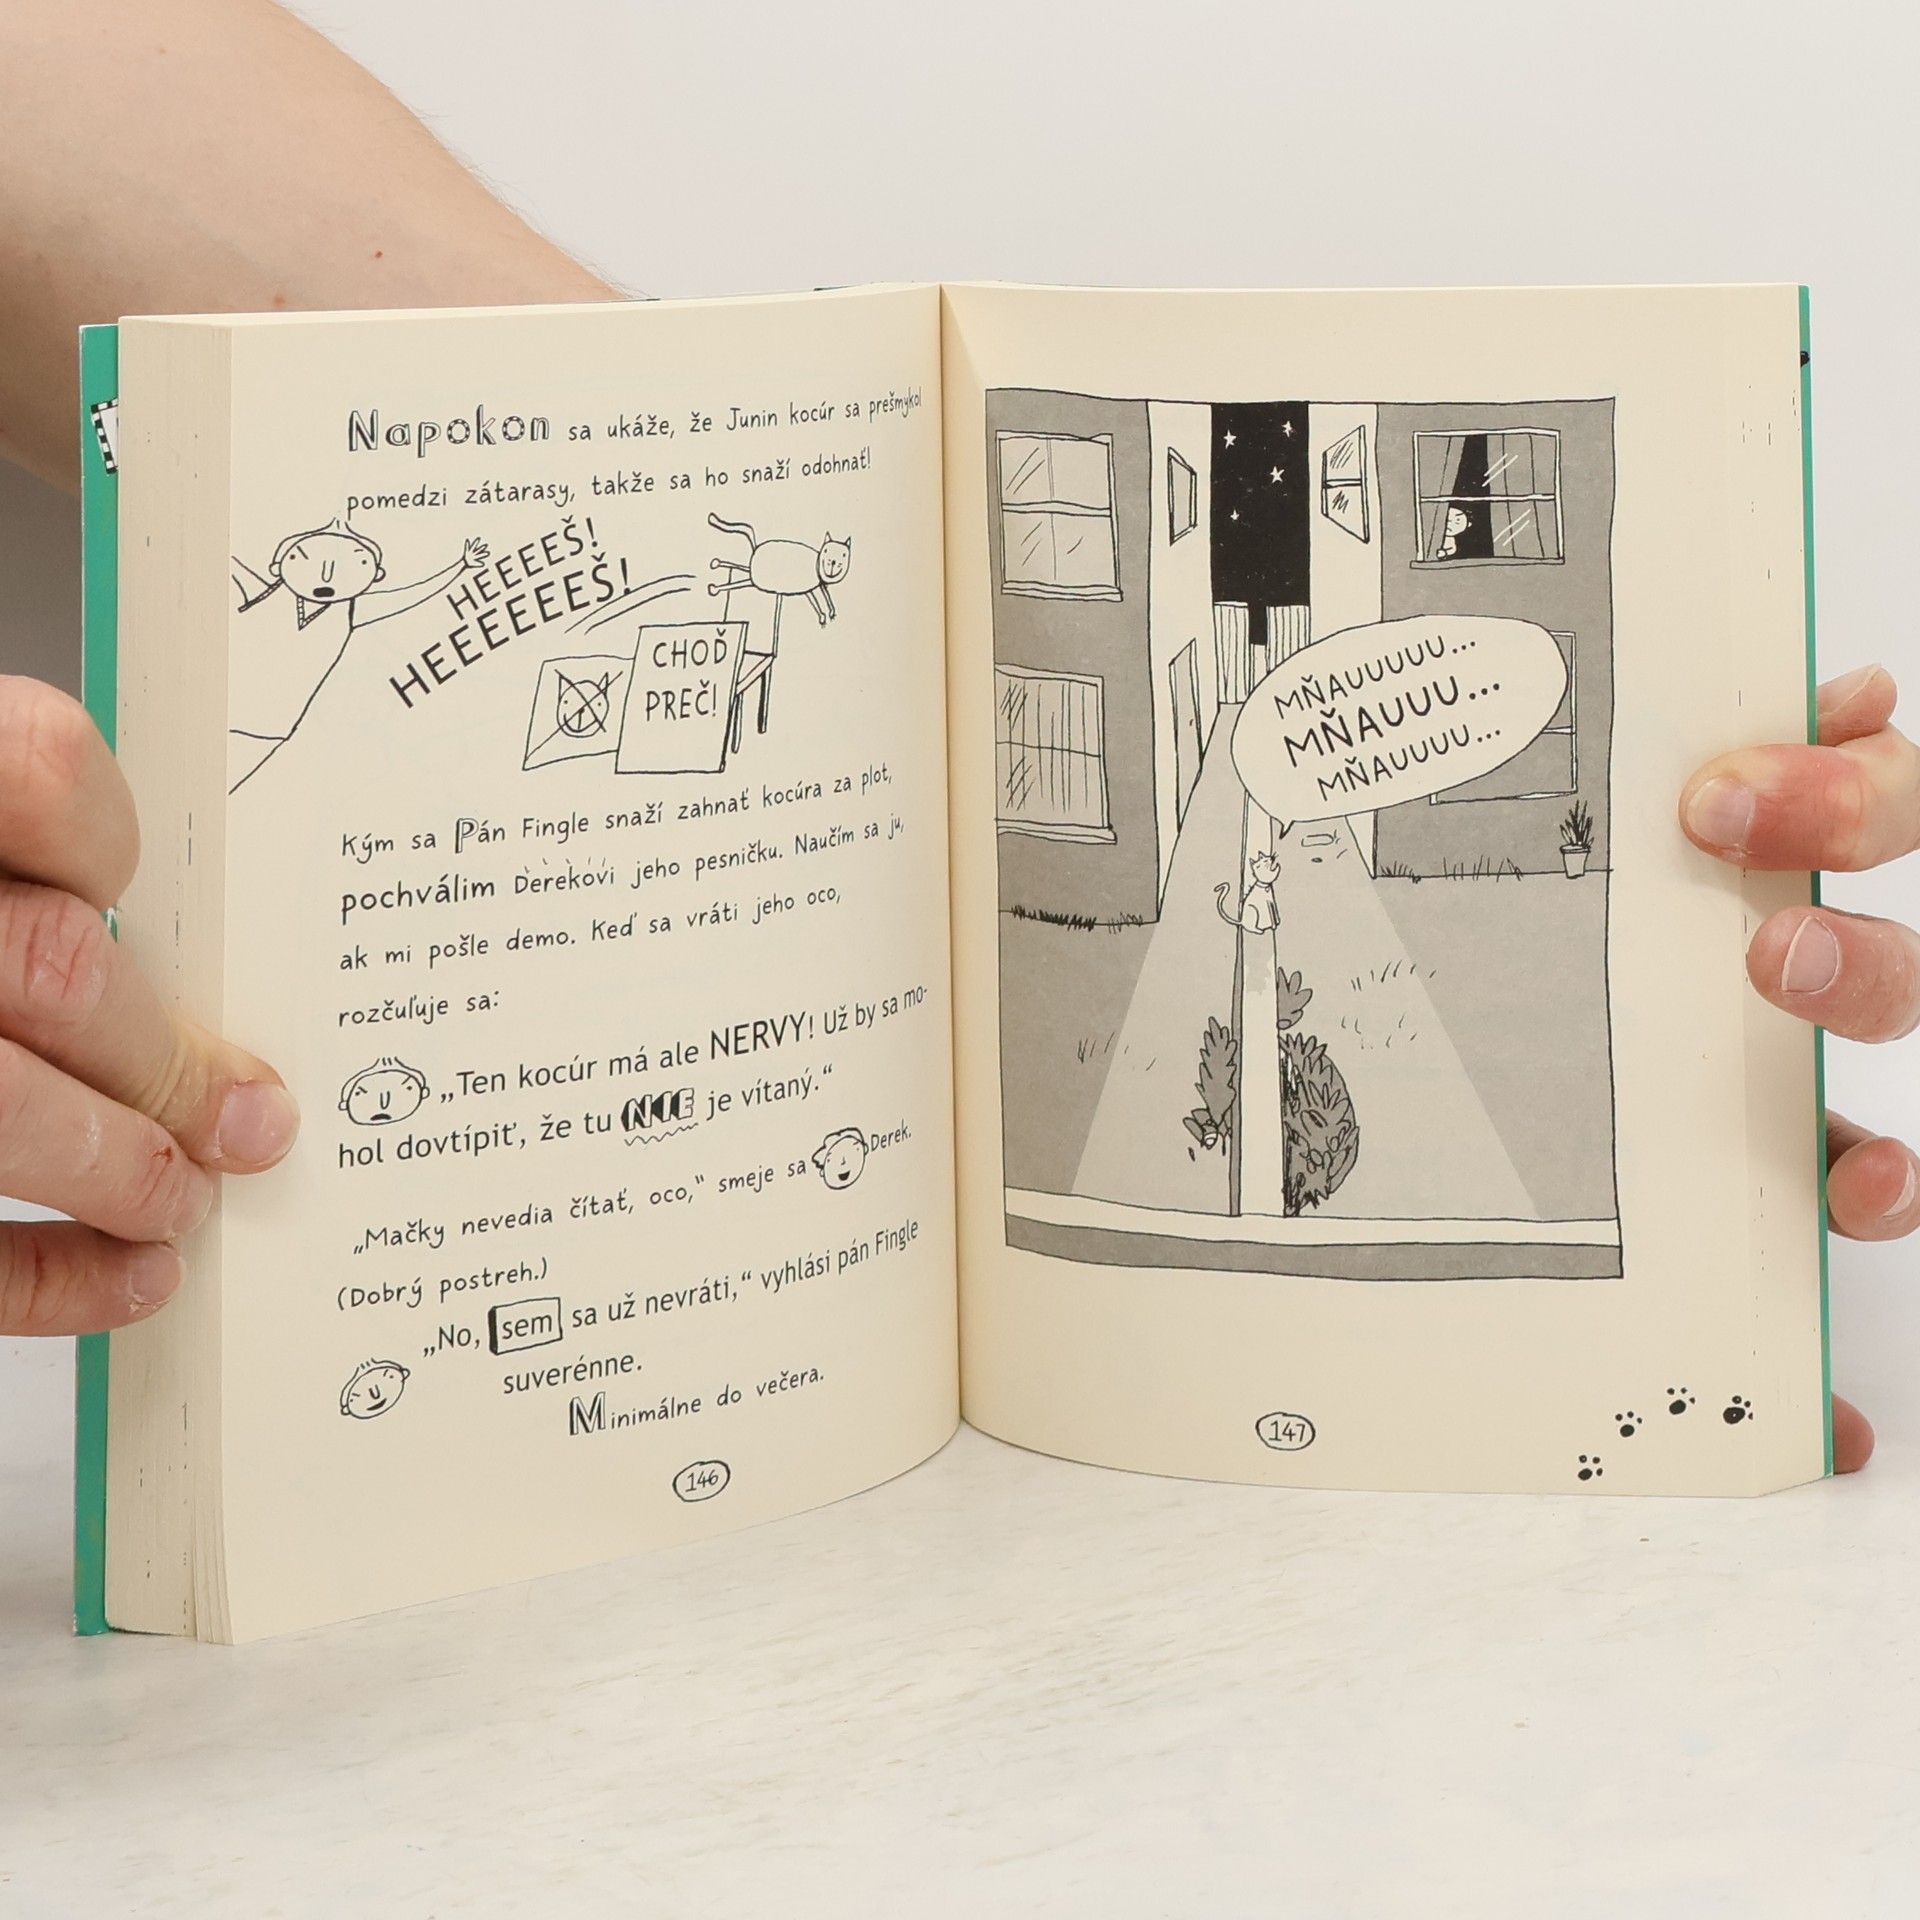 Napokon sa ukáže, že Junin kocúr sa prešmykol
pomedzi zátarasy, takže sa ho snaží odohnať!
HEEEEŠ!
HEEEEEEŠ!
CHOĎ
PREČ!
Kým sa Pán Fingle snaží zahnať kocúra za plot,
pochválim Derekovi jeho pesničku. Naučím sa ju,
ak mi pošle demo. Keď sa vráti jeho oco,
rozčuľuje sa:
„Ten kocúr má ale NERVY! Už by sa mo-
hol dovtípiť, že tu NIE je vítaný.“
„Mačky nevedia čítať, oco,“ smeje sa Derek.
(Dobrý postreh.)
„No, sem sa už nevráti,“ vyhlási pán Fingle
suverénne.
Minimálne do večera.
146
MŇAUUUUU...
MŇAUUU...
MŇAUUUU...
147